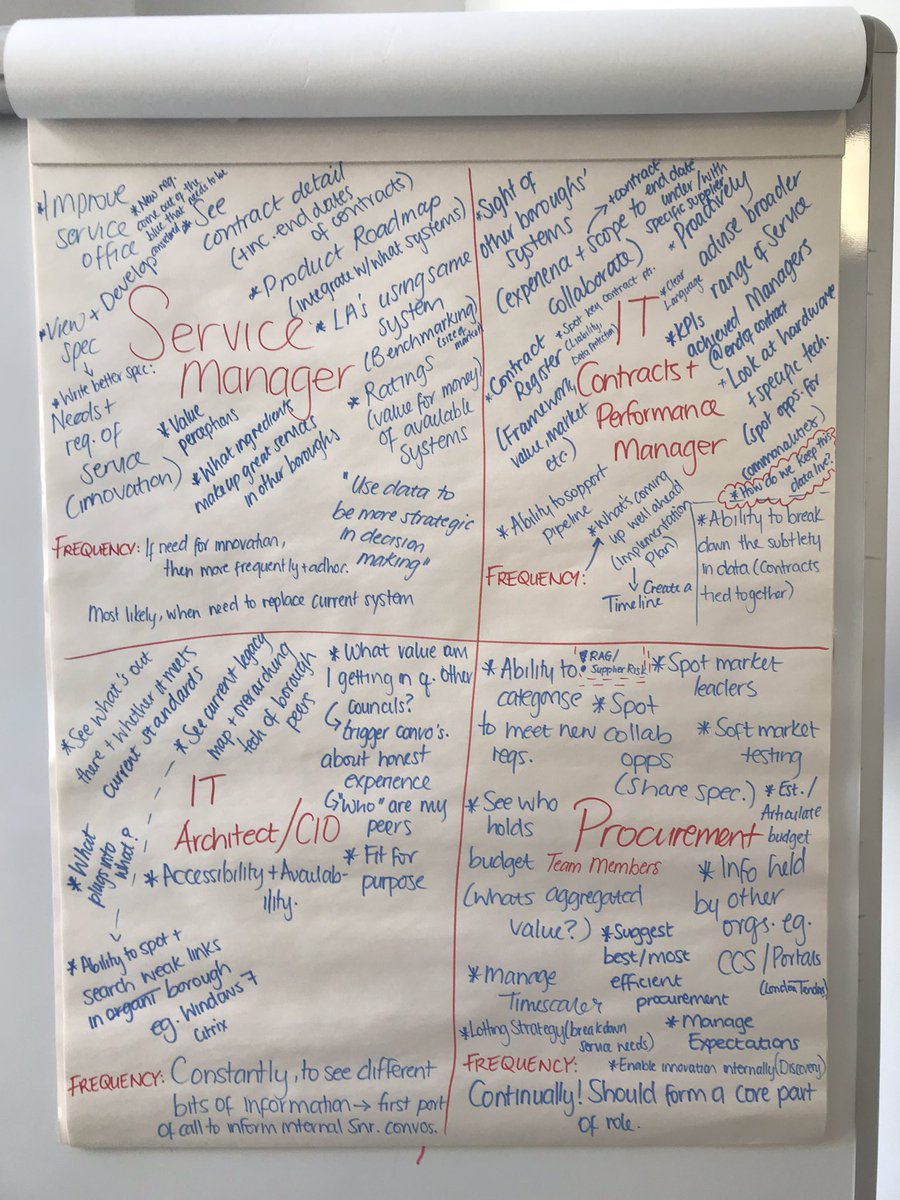 *Improve
service
office
*New req.
come out of the
blue that needs to be
answered
*See
contract detail
(+inc. end dates
of contracts)
*View + Develop
spec
*Write better spec:
Needs +
req. of
service
(innovation)
*Product Roadmap
(integrate w/ what systems)
Service
Manager
*LA's using same
system
(Benchmarking)
*Ratings
(value for money)
of available
systems
*Value
perceptions
*What ingredients
make up great services
in other boroughs
"Use data to
be more strategic
in decision
making"
FREQUENCY: If need for innovation,
then more frequently + adhoc.
Most likely, when need to replace current system
*Sight of
other boroughs'
systems
(experience + scope to
collaborate)
→ + contract
end date
under/with
specific supplier
*Proactively
advise broader
range of Service
Managers
*Clear
Language
*Spot key contract
(Liability,
Data Protection)
*Contract
Register
(Framework,
value, market
etc)
IT
Contracts +
Performance
Manager
*KPIs
achieved
@ end of contract
+ Look at hardware
+ specific tech.
(spot opps. for
commonalities)
*How do we keep this
data live?
*Ability to support
pipeline
*What's coming
up well ahead
(Implementation
Plan)
→ Create a
Timeline
FREQUENCY:
*Ability to break
down the subtlety
in data (Contracts
tied together)
*See what's out
there + whether it meets
current standards
*See current legacy
map + overarching
tech of borough
peers
*What value am
I getting in q. other
councils?
↳ trigger convo's.
about honest
experience
↳ "who" are my
peers
IT
Architect/CIO
*What
plugs into
what?
*Accessibility + Availab-
ility.
*Fit for
purpose
*Ability to spot +
search weak links
in organ borough
eg. Windows 7
Citrix
FREQUENCY: Constantly, to see different
bits of information → first port
of call to inform internal Snr. convos.
*Ability to
categorise
to meet new
reqs.
RAG/
Supplier Risk
*Spot
collab
opps
(share spec.)
*Spot market
leaders
*Soft market
testing
*Est./
Articulate
budget
*See who
holds
budget
(whats aggregated
value?)
Procurement
Team Members
*Info held
by other
orgs. eg.
CCS/Portals
(London Tenders)
*Suggest
best/most
efficient
procurement
*Manage
Timescales
*Lotting Strategy (breakdown
service needs)
*Manage
Expectations
*Enable innovation internally (Discovery)
FREQUENCY:
Continually! Should form a core part
of role.